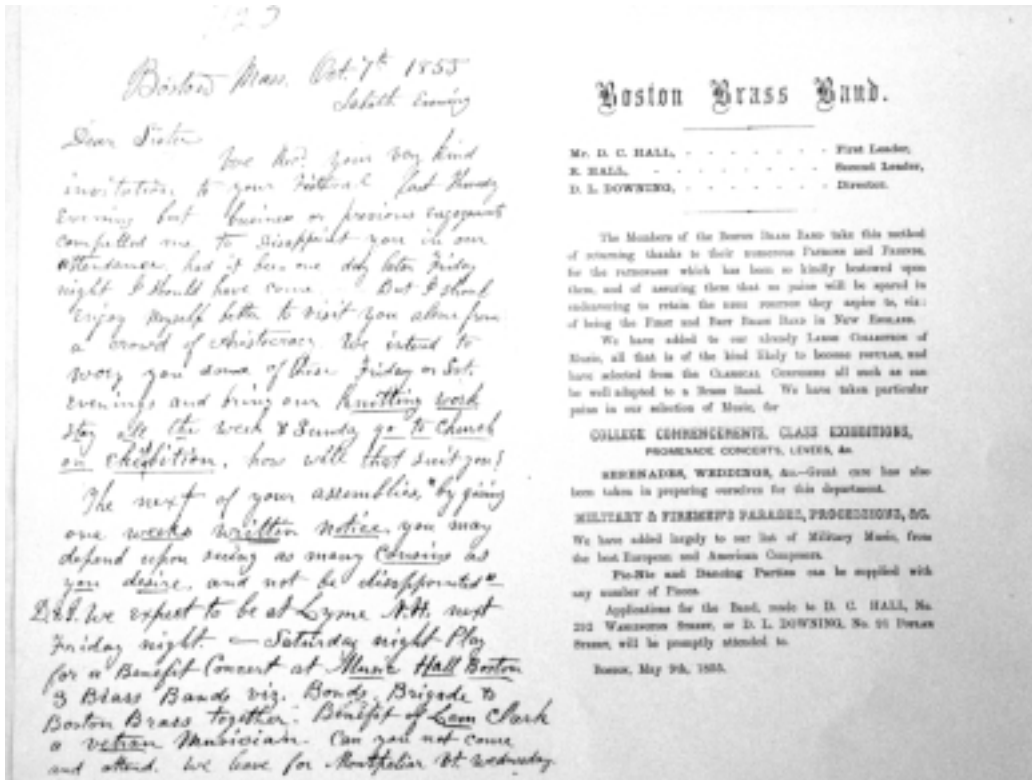 Boston Mass. Oct. 7th 1855
Sabath Evening
Dear Sister
We your very kind
invitation to your Festival last
Evening but business or previous engagements
compelled me, to disappoint you in our
attendance, had it been one day later Friday
night I should have come. But I should
enjoy myself better to visit you alone from
a crowd of Aristocracy. We intend to
you some of these Friday or Sat.
evenings and bring our knitting work
stay all the week & Sunday go to church
on exhibition, how will that suit you?
The next of your assemblies, "by giving
one weeks written notice, you may
depend upon seeing as many Cousins as
you desire, and not be disappointed"
We expect to be at Lyme N.H. next
Friday night. — Saturday night Play
for a Benefit Concert at Music Hall Boston
3 Brass Bands viz. Bonds, Brigade &
Boston Brass together. Benefit of Clark
a vetran Musician. Can you not come
and attend. We leave for Montpelier Vt. Wednesday
Boston Brass Band.
Mr. D. C. HALL, - - - - - - - First Leader,
E. HALL, - - - - - - - Second Leader,
D. L. DOWNING, - - - - - - - Director.
The Members of the Boston Brass Band take this method
of returning thanks to their numerous Patrons and Friends,
for the patronage which has been so kindly bestowed upon
them, and of assuring them that no pains will be spared in
endeavoring to retain the position they aspire to, viz:
of being the First and Best Brass Band in New England.
We have added to our already Large Collection of
Music, all that is of the kind likely to become popular, and
have selected from the Classical Composers all such as can
be well adapted to a Brass Band. We have taken particular
pains in our selection of Music, for
COLLEGE COMMENCEMENTS, CLASS EXHIBITIONS,
PROMENADE CONCERTS, LEVEES, &c.
SERENADES, WEDDINGS, &c.—Great care has also
been taken in preparing ourselves for this department.
MILITARY & FIREMEN'S PARADES, PROCESSIONS, &C.
We have added largely to our list of Military Music, from
the best European and American Composers.
Pic-Nic and Dancing Parties can be supplied with
any number of Pieces.
Applications for the Band, made to D. C. HALL, No.
292 Washington Street, or D. L. DOWNING, No. 91 Poplar
Street, will be promptly attended to.
Boston, May 9th, 1855.